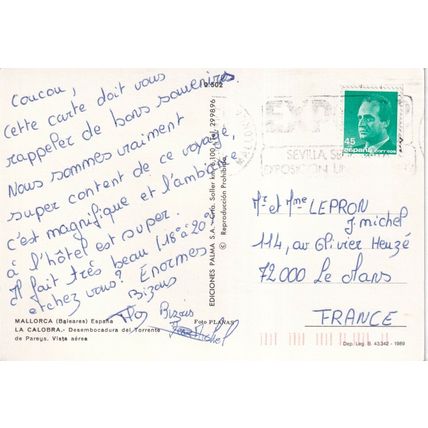 Coucou,
Cette carte doit vous
rappeler de bons souvenirs.
Nous sommes vraiment
super content de ce voyage.
c'est magnifique et l'ambiance
à l'hôtel est super.
Il fait très beau (18° à 20°)
et chez vous? Enormes
Bizous
Flo Bizous
MALLORCA (Baleares) España
LA CALOBRA.- Desembocadura del Torrente
de Pareys. Vista aérea
Foto PLANAS
EDICIONES PALMA S.A.-Crta. Soller km. 6'100-Tel. 299896
© Reproducción Prohibida
MALLORCA
EXPO
SEVILLA
EXPOSICION
45
España
correos
Mr et Mme LEPRON
J. michel
114, av Olivier Heuzé
72000 Le Mans
FRANCE
Dep. Leg. B. 43.342 - 1989